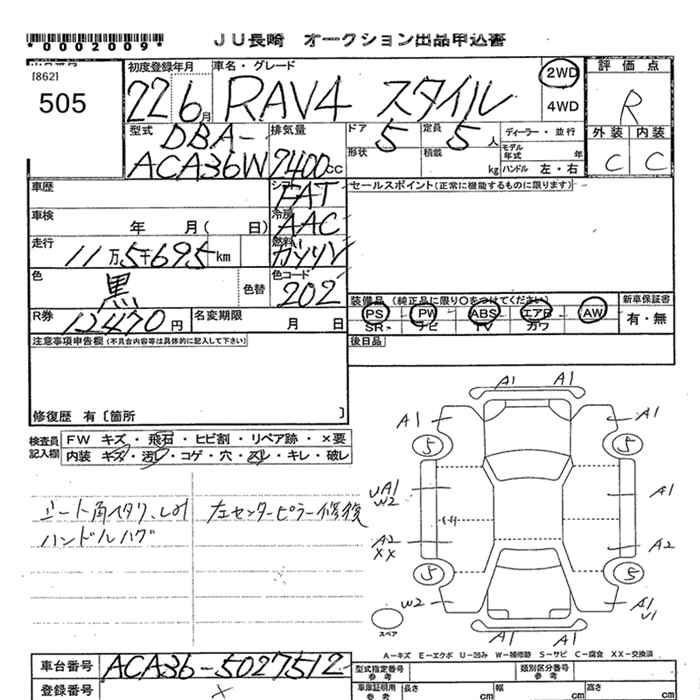 *0002009*
JU長崎 オークション出品申込書
[862]
505
初度登録年月 車名・グレード 2WD 4WD 評価点
22 6月 RAV4 スタイル R
型式 排気量 ドア 定員 ディーラー・並行 外装 内装
DBA-ACA36W 2400cc 5 5人 C C
形状 積載 kg モデル年式 年 ハンドル 左・右
車歴 シフト FAT セールスポイント(正常に機能するものに限ります)
車検 年 月( 日) 冷房 AAC
走行 11万5千695km 燃料 ガソリン
色 黒 色替 色コード 202
装備品 (純正品に限り○をつけてください) 新車保証書
PS PW ABS エアB AW 有・無
SR ナビ TV カワ
R券 12470円 名変期限 月 日
後日品
注意事項申告欄(不具合内容等は具体的に記入して下さい)
修復歴 有 [箇所 ]
検査員記入欄 FW キズ・飛石・ヒビ割・リペア跡・×要
内装 キズ・汚レ・コゲ・穴・スレ・キレ・破レ
シート角ヘタリ、しみ 左センターピラー修後
ハンドルハゲ
A1 A1
A1 A1
5 5
UA1 W2 A1
A2 XX A2
5 5
W2 A1 U1
スペア A1 A1
A-キズ E-エクボ U-凹み W-補修跡 S-サビ C-腐食 XX-交換済
車台番号 ACA36-5027512
登録番号 ×
型式指定番号 参考 類別区分番号 参考
車庫証明用 参考 長さ cm 幅 cm 高さ cm